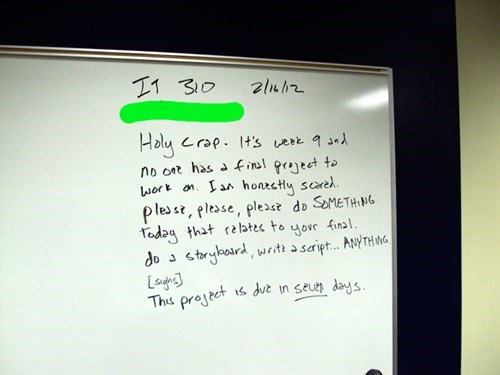 IT 310 2/16/12
Holy crap. It's week 9 and
no one has a final project to
work on. I am honestly scared.
please, please, please do SOMETHING
today that relates to your final.
do a storyboard, write a script... ANYTHING.
[sighs]
This project is due in seven days.